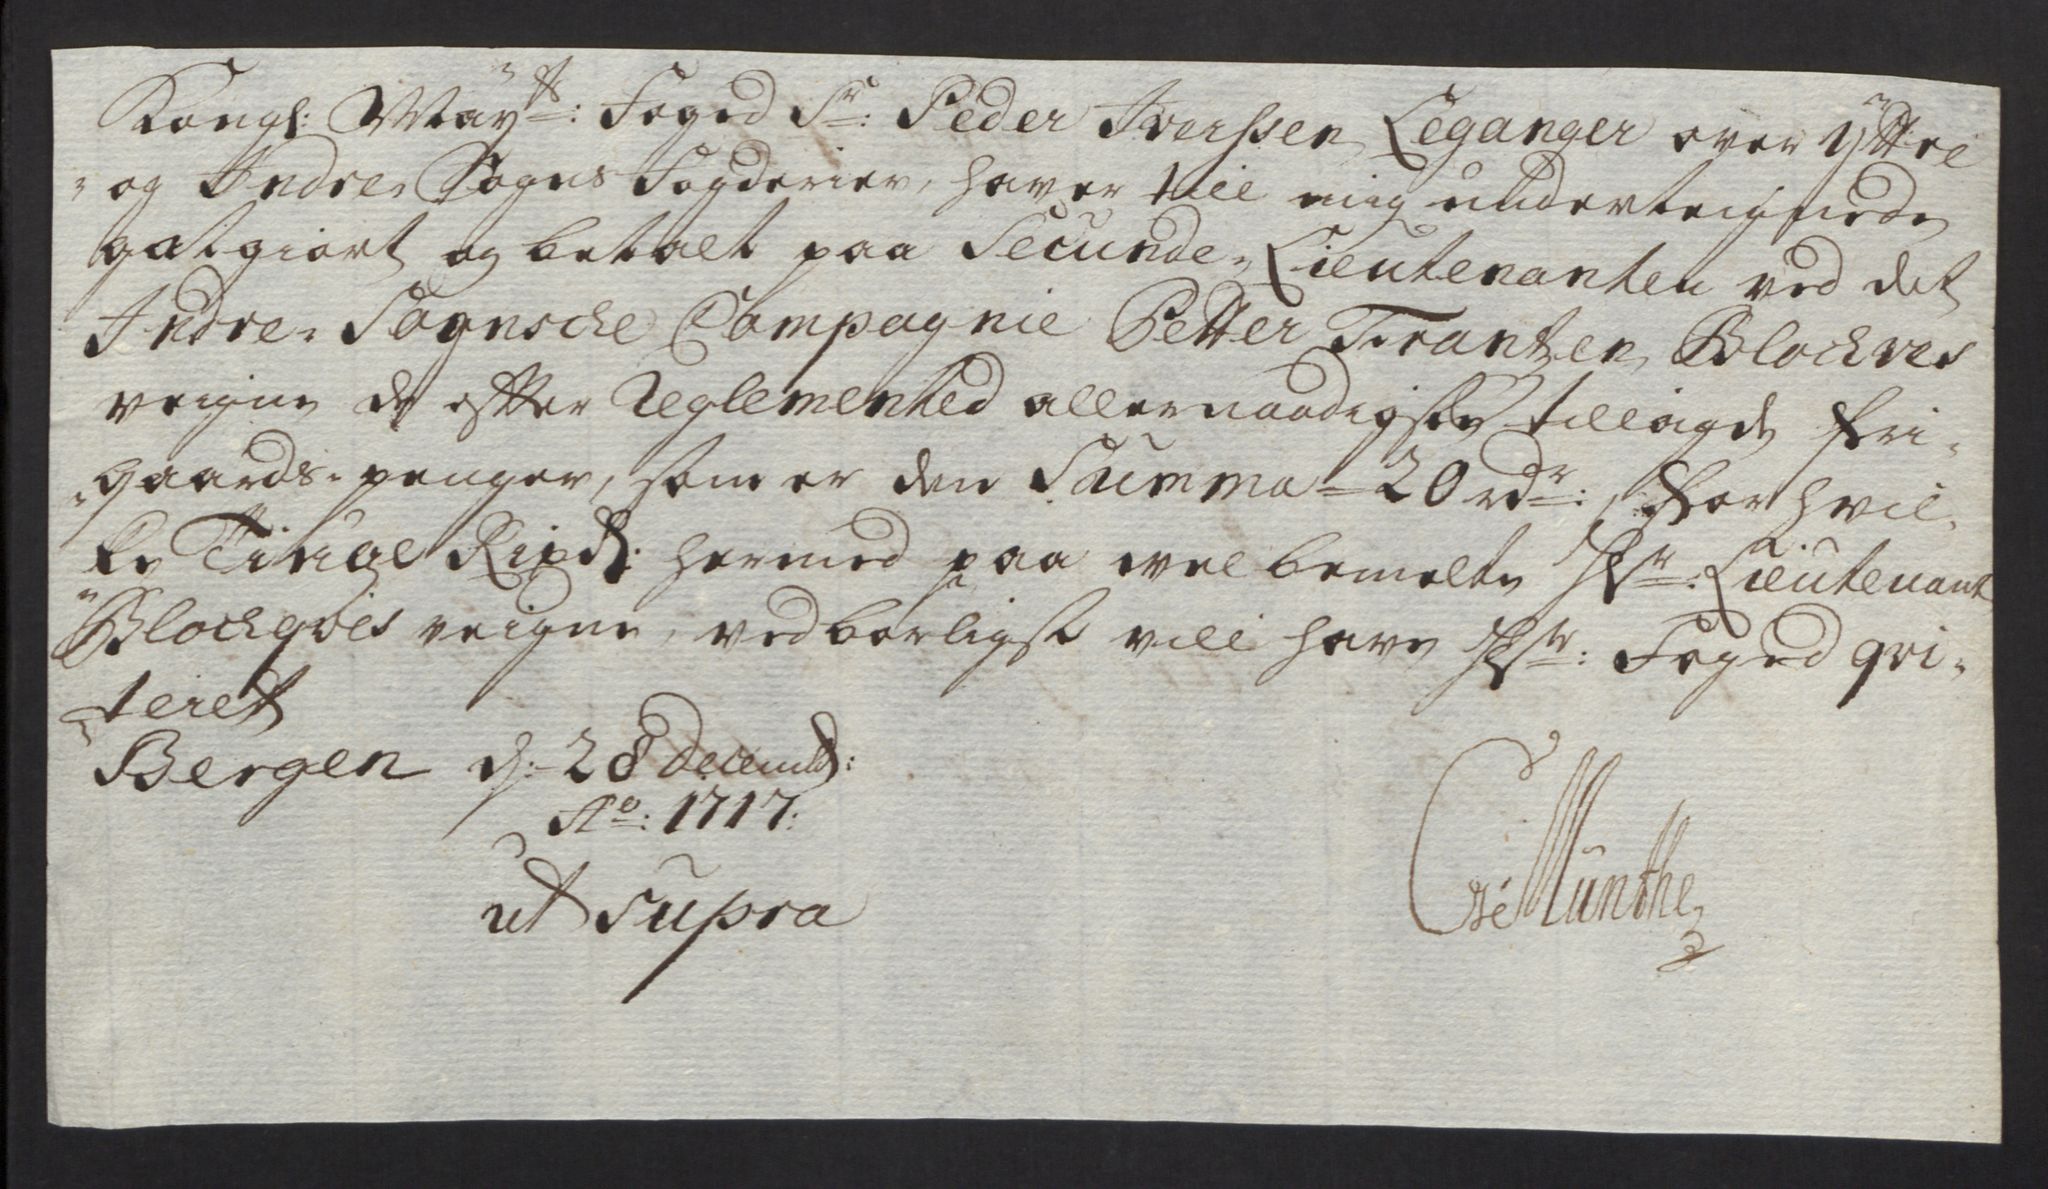 Kongl: Mayts: Foged Sr: Peder Iverssen Leganger over Yttre
og Indre Sogns Fogderier, haver till mig underteignede
gotgiort og betalt paa Secunde-Lieutenanten ved det
Indre-Sognsche Compagnie Petter Frantzen Blockves
veigne de efter Reglemented allernaadigste tillagde fri-
gaards-penger, som er den Summa - 20 rdr: for hvil-
ke Tiuge Rixdl: hermed paa vel bemelte Hr: Lieutenant
Blockqves veigne, vedborligst vill have Hr: Foged qvi-
teret
Bergen d: 28 Decemb:
Ao: 1717:
ut supra
Münthe